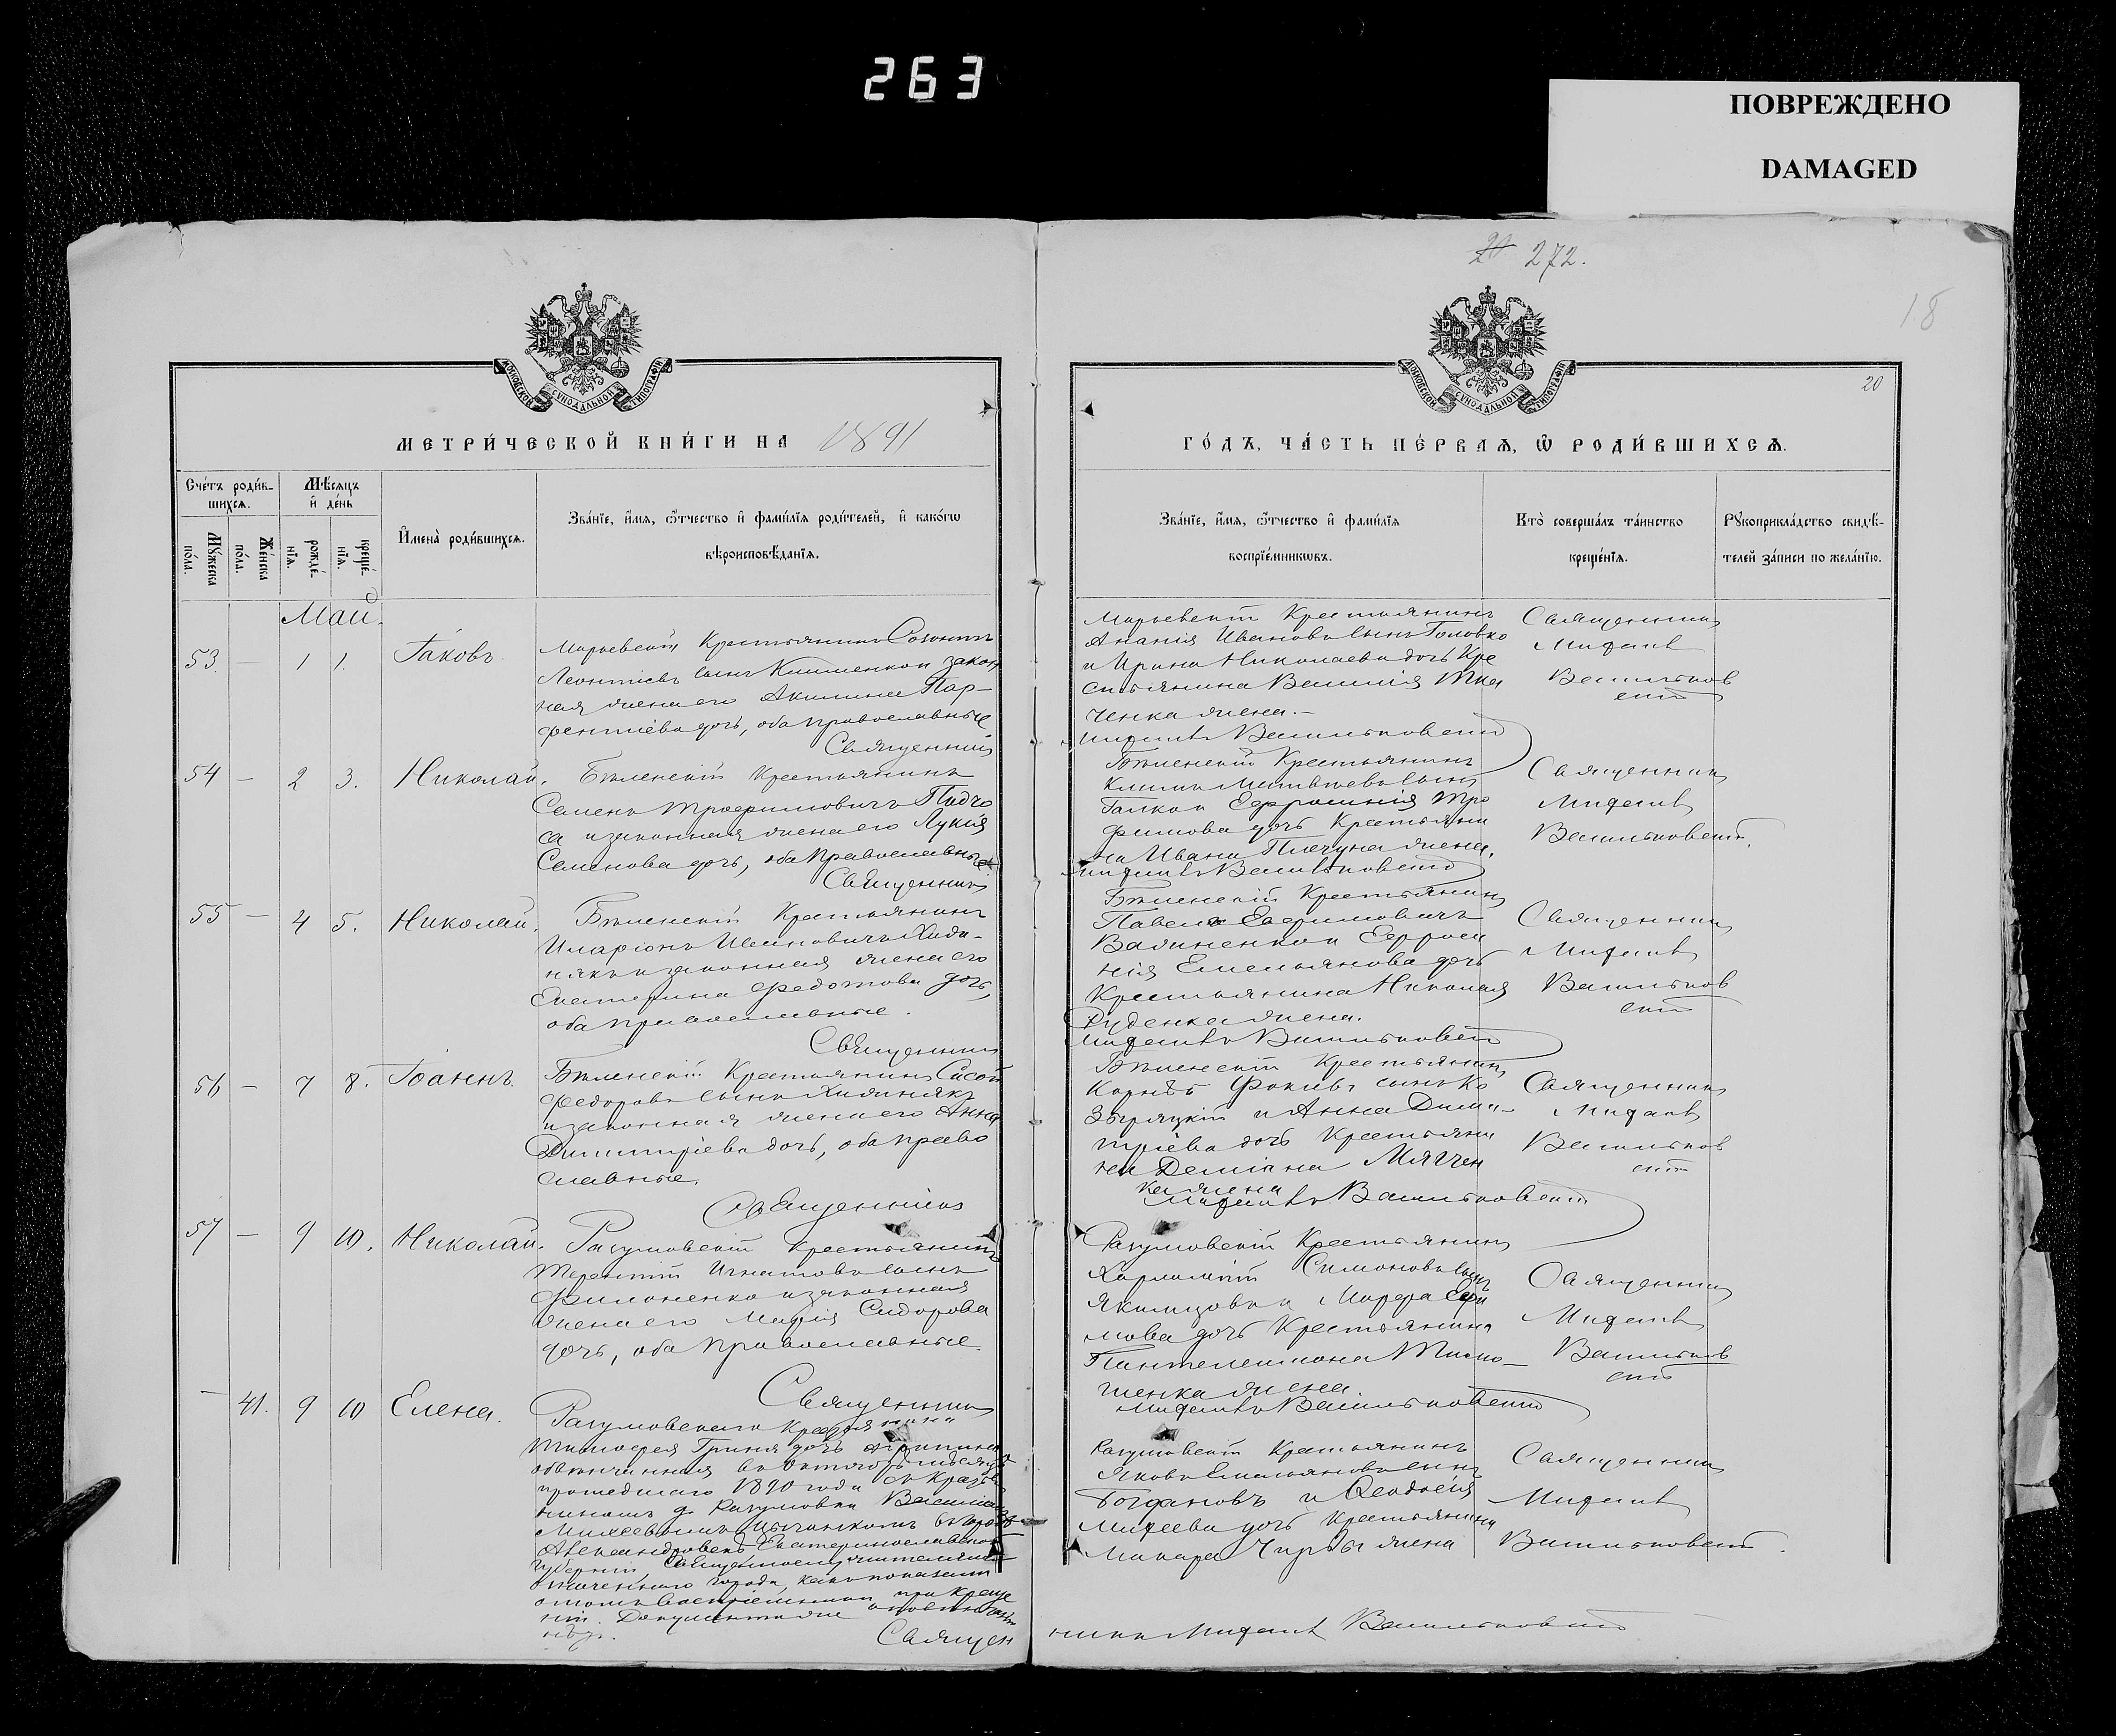 263
ПОВРЕЖДЕНО
DAMAGED
272.
18
20
МЕТРИ́ЧЕСКОЙ КНИ́ГИ НА 1891
ГО́ДЪ, ЧА́СТЬ ПЕ́РВАѦ, Ѽ РОДИ́ВШИХСѦ.
Сче́тъ роди́в-
шихсѧ.
Мꙋ́жеска по́ла.
Же́нска по́ла.
Мѣ́сѧцъ
и҆ де́нь
рожде́-нїѧ.
креще́-нїѧ.
И҆мена̀ роди́вшихсѧ.
Зва́нїе, и҆́мѧ, ѻ҆́тчество и҆ фами́лїѧ роди́телей, и҆ како́гѡ
вѣроисповѣ́данїѧ.
Зва́нїе, и҆́мѧ, ѻ҆́тчество и҆ фами́лїѧ
воспрїе́мникѡвъ.
Кто̀ соверша́лъ та́инство
креще́нїѧ.
Рꙋкоприкла́дство свидѣ́-
телей за́писи по жела́нїю.
Май.
53 — 1 1. Іаковъ
Марьевскій Крестьянинъ Созонтъ
Леонтіевъ сынъ Клименко и закон
ная жена его Акилина Пар-
фентіева дочь, оба православные
Священникъ
Марьевскій Крестьянинъ
Ананія Ивановъ сынъ Головко
и Ирина Николаева дочь Кре
стьянина Василія Тка
ченка жена.—
Мифодій Васильковскій
Священникъ
Мифодій
Васильков
скій
54 — 2 3. Николай.
Бѣленскій Крестьянинъ
Семенъ Трофимовичъ
са и законная жена его Лукія
Семенова дочь, оба православные
Священникъ
Бѣленскій Крестьянинъ
Климъ Матвѣевъ сынъ
Галко и Ефросинія Тро
фимова дочь Крестьяни
на Ивана Плачуна жена.
Мифодій Васильковскій
Священникъ
Мифодій
Васильковскій.
55 — 4 5. Николай.
Бѣленскій Крестьянинъ
Иларіонъ Ивановичъ Хидь-
някъ и законная жена его
Екатерина Федотова дочь,
оба православные.
Священникъ
Бѣленскій Крестьянинъ
Павелъ Евфимовичъ
и Ефроси
нія Емельянова дочь
Крестьянина Николая
Руденка жена.
Мифодій Васильковскій
Священникъ
Мифодій
Васильков
скій
56 — 7 8. Іоаннъ.
Бѣленскій Крестьянинъ Сисой
Федоровъ сынъ Хидьнякъ
и законная жена его Анна
Димитріева дочь, оба право
славные.
Священникъ
Бѣленскій Крестьянинъ
Корнѣй Фокіевъ сынъ Ко
зыряцкій и Анна Дими-
тріева дочь Крестьяни
на Деміана Мягчен
ка жена
Мифодій Васильковскій
Священникъ
Мифодій
Васильков
скій
57 — 9 10. Николай.
Разумовскій Крестьянинъ
Терентій Игнатовъ сынъ
Филоненко и законная
жена его Марія Сидорова
дочь, оба православные.
Священникъ
Разумовскій Крестьянинъ
Харлампій Симоновъ сынъ
Якимцовъ и Марфа Ефи
мова дочь Крестьянина
Пантелеимона Тимо-
шенка жена.
Мифодій Васильковскій
Священникъ
Мифодій
Васильков
скій
— 41. 9 10 Елена.
Разумовскаго Крестьянина
Тимофея Гриня дочь Агрипина
обвѣнчанная въ Октябрѣ мѣсяцѣ
прошедшаго 1890 года съ
д. Разумовки
Михеевымъ въ городѣ
Александровскѣ Екатеринославской
губерніи, Священно
города, какъ показали
о томъ воспріемники при креще
ніи. Документа же
нѣтъ.
Священ
Разумовскій Крестьянинъ
Яковъ Емельяновъ сынъ
Богдановъ и Ѳеодосія
Мифеева дочь Крестьянина
Макара Чирвы жена
никъ Мифодій Васильковскій
Священникъ
Мифодій
Васильковскій.